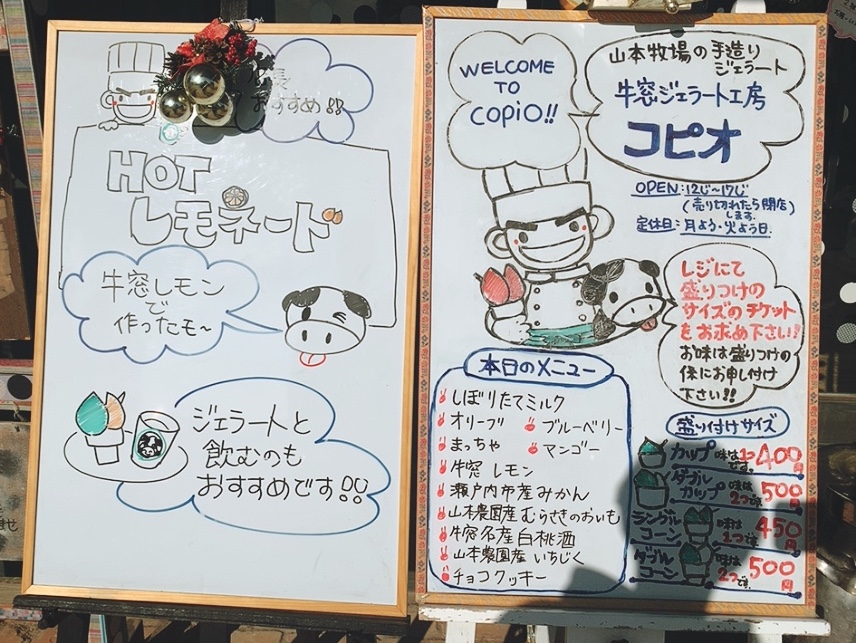 おすすめ!!
HOT
レモネード
牛窓レモン
で
作ったモ〜
ジェラートと
飲むのも
おすすめです!!
WELCOME
TO
COPiO!!
山本牧場の手造り
ジェラート
牛窓ジェラート工房
コピオ
OPEN:12じ〜17じ
(売り切れたら閉店
します。)
定休日:月よう・火よう日.
レジにて
盛りつけの
サイズのチケット
をお求め下さい!
お味は盛りつけの
係にお申し付け
下さい!!
本日のメニュー
しぼりたてミルク
オリーブ ブルーベリー
まっちゃ マンゴー
牛窓 レモン
瀬戸内市産みかん
山本農園産むらさきのおいも
牛窓名産白桃酒
山本農園産いちじく
チョコクッキー
盛り付けサイズ
カップ 味は1つです。 400円
ダブルカップ 味は2つです。 500円
ラングルコーン 味は1つです。 450円
ダブルコーン 味は2つです。 500円